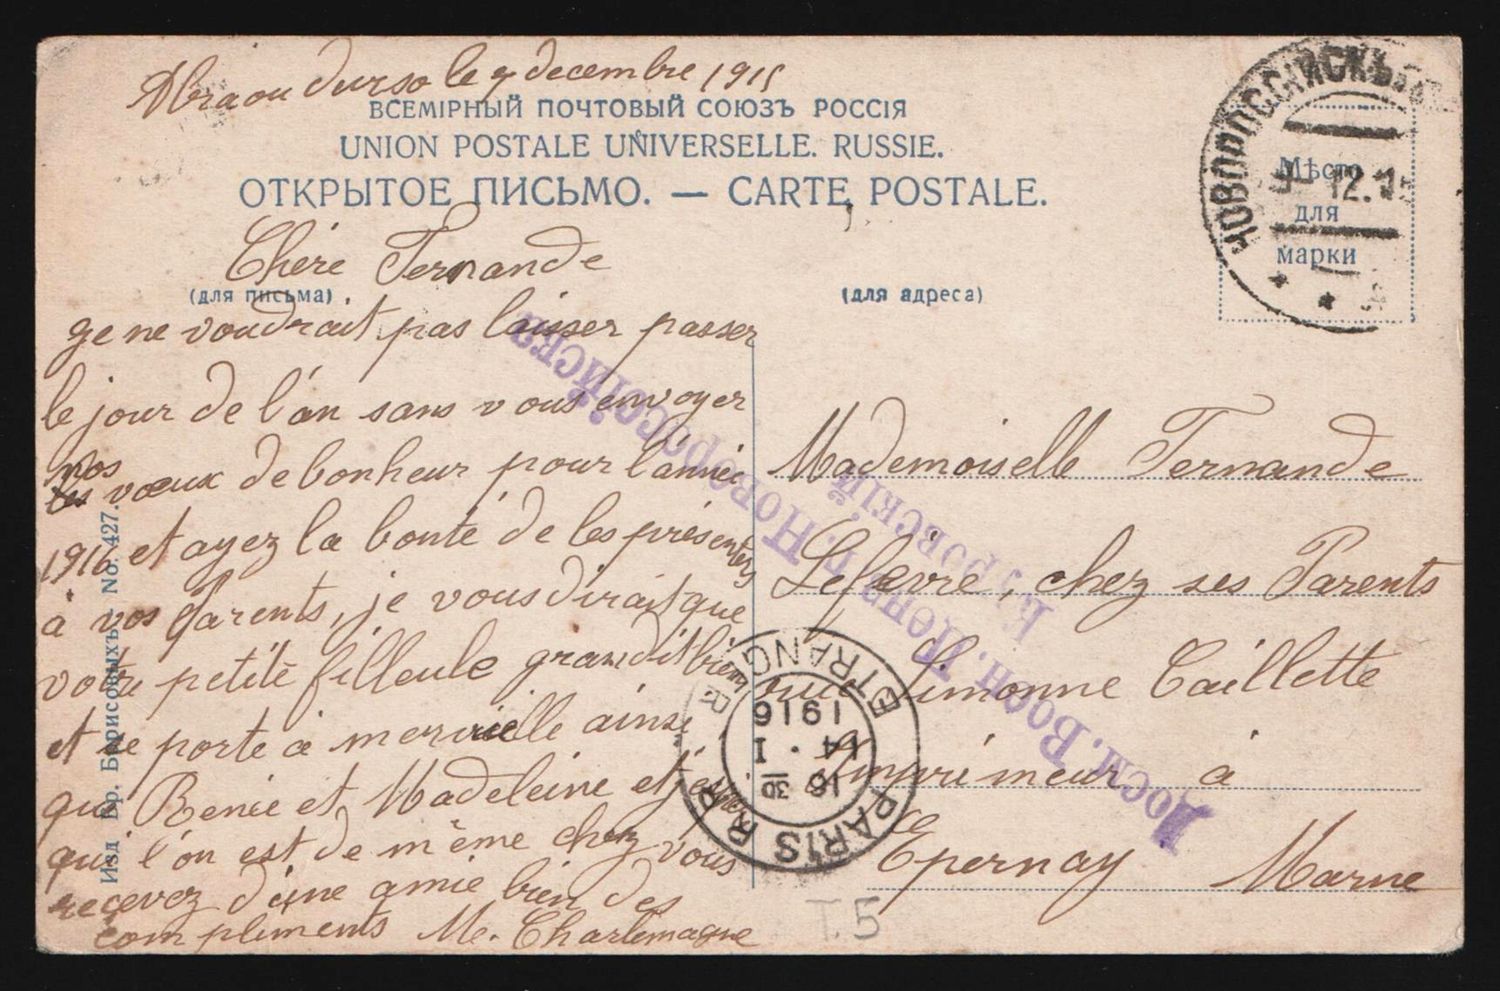 Abraou Durso le 7 decembre 1915
ВСЕМІРНЫЙ ПОЧТОВЫЙ СОЮЗЪ РОССІЯ
UNION POSTALE UNIVERSELLE. RUSSIE.
ОТКРЫТОЕ ПИСЬМО. — CARTE POSTALE.
Chère Fernande
(для письма)
ge ne voudrait pas laisser passer
le jour de l'an sans vous envoyer
nos
vœux de bonheur pour l'année
1916 et ayez la bonté de les présenters
à vos Parents, je vous dirait que
votre petite filleule grandit bien
et se porte à merveille ainsi
que Renée et Madeleine et j'espère
qui l'on est de même chez vous
recevez d'une amie bien des
compliments M. Charlemagne
Изд. Бр. Борисовыхъ. No. 427.
(для адреса)
Мѣсто
для
марки
НОВОРОССІЙСКЪ
12.15
Mademoiselle Fernande
Lefèvre, chez ses Parents
rue Simonne Caillette
Imprimeur à
Epernay Marne
Досм. Воен. Ценз. г. Новороссійска
PARIS R.P.
ETRANGER
16 30
14 . 1
1916
T.5